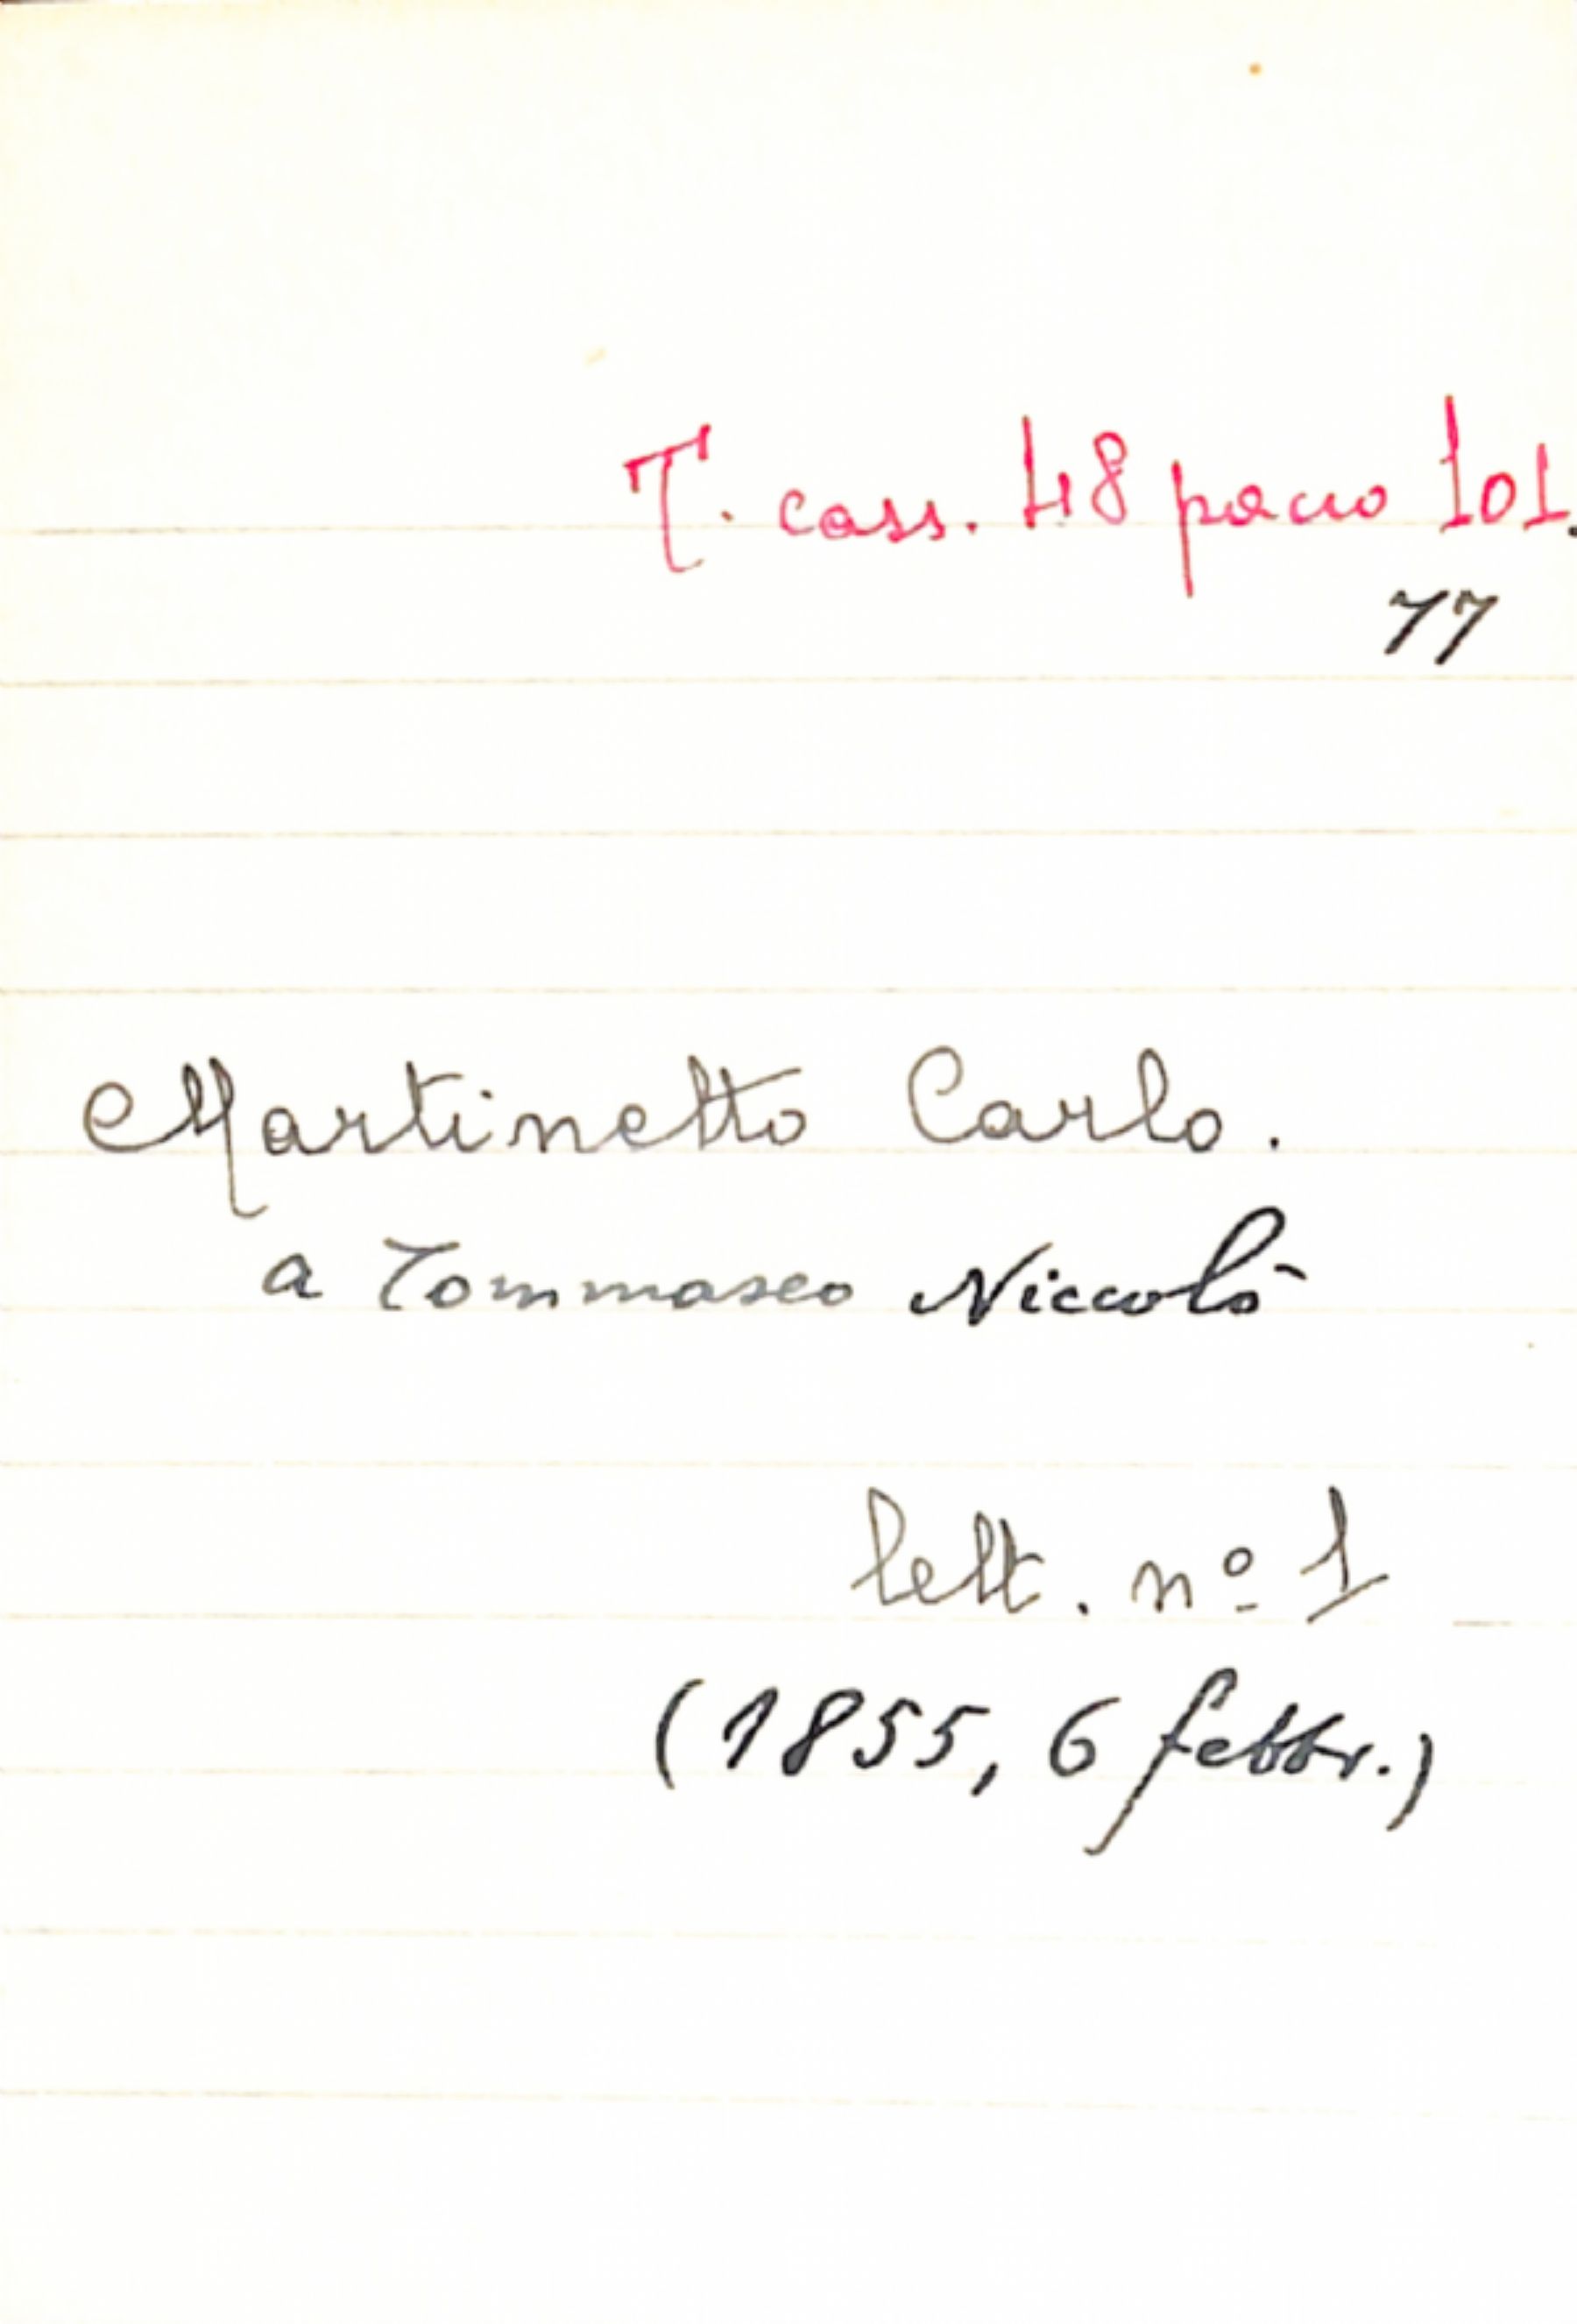 T. cass. 48 pacco 101.
77
Martinetto Carlo.
a Tommaseo Niccolò
lett. nº 1
(1855, 6 febbr.)